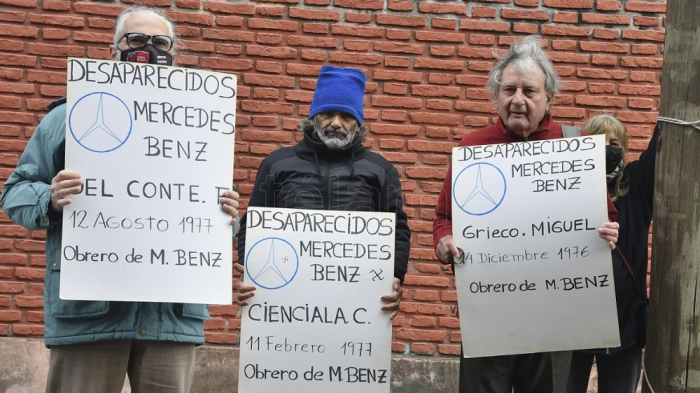 DESAPARECIDOS
MERCEDES
BENZ
DEL CONTE. F
12 AGOSTO 1977
Obrero de M. BENZ
DESAPARECIDOS
MERCEDES
BENZ
CIENCIALA.C.
11 Febrero 1977
Obrero de M.BENZ
DESAPARECIDOS
MERCEDES
BENZ
Grieco. MIGUEL
14 Diciembre 1976
Obrero de M. BENZ